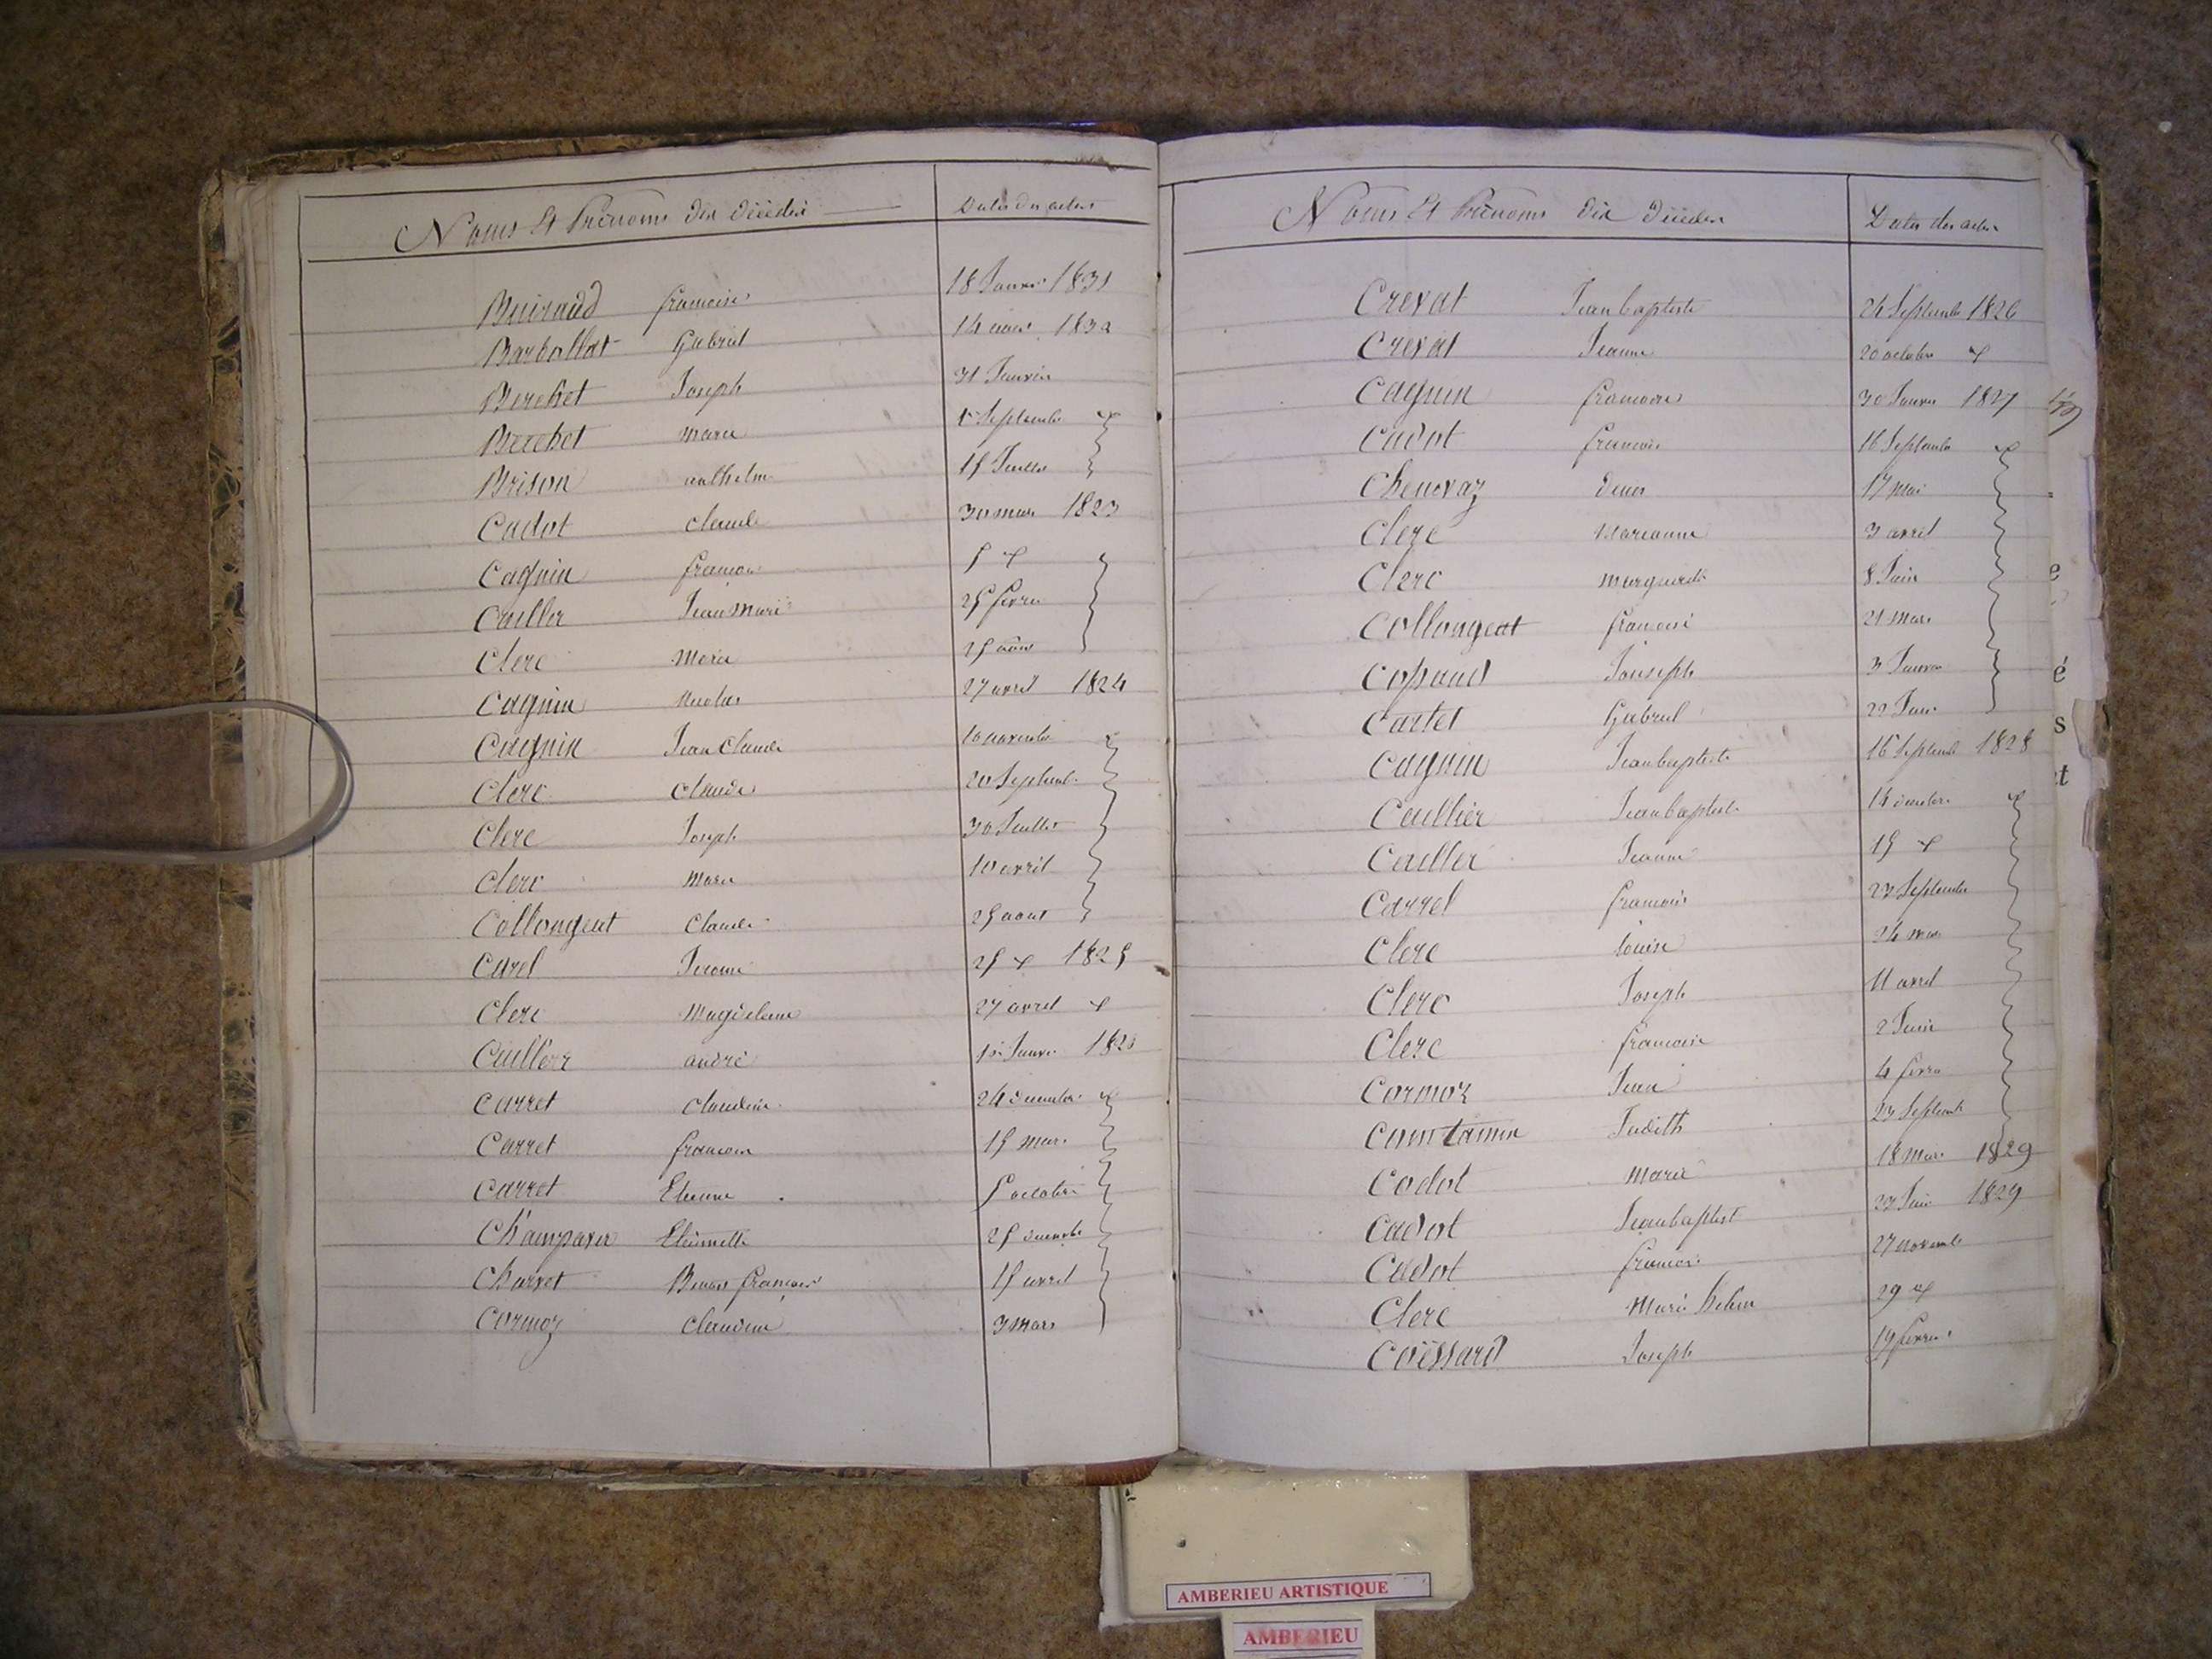 Noms Et Prénoms des décédés
Dates des actes
Buiraud francoise 18 Janvr 1831
Barbollat Gabriel 14 1832
Berchet Joseph 31 Janvier
Berchet Marie Septembre
Brison anthelm 15 Juillet
Cadot claude 30 mars 1823
Cagnin francois 5
Caillier Jean Marie 25 fevr
Clerc Marie 25 aout
Cagnin Nicolas 27 avril 1824
Cagnin Jean Claude 10 novembre
Clerc claude 20 Septemb
Clerc Joseph 30 Juillet
Clerc Marie 10 avril
Collongeat Claude 25 aout
Carel Jerome 25 1825
Clerc Magdelaine 27 avril
Caillier andré Janvr
Carret claudine 24 decembre
Carret francois 15 mars
Carret Etienne 5 octobre
Champavier Etiennette 25 decembre
Charvet francois 15 avril
Cormoz Claudine 3 Mars
Noms Et Prénoms des décédés
Dates des actes
Crevat Jean baptiste 24 Septembre 1826
Crevat Jeanne 20 octobre
Cagnin francoise 30 Janvier 1827
Cadot francois 16 Septembre
Chenevaz Denis 17 mai
Clerc Marianne 3 avril
Clerc marguerite 8 Juin
Collongeat francoise 21 Mars
Copaud Jouseph 3 Janvier
Cartet Gabriel 22
Cagnin Jean baptiste 16 Septemb 1828
Caillier Jean baptiste 14
Caillier Jeanne 15
Carrel francois 23 Septembre
Clerc louise 24 mars
Clerc Joseph 11 avril
Clerc francoise 2 Juin
Cormoz Jean 4 fevr
Constantin Judith 23 Septemb
Cadot Marie 18 Mars 1829
Cadot Jean baptist 1829
Cadot francois 27 novemb
Clerc Marie 29
Coissard Joseph 19 fevrier
AMBERIEU ARTISTIQUE
AMBERIEU